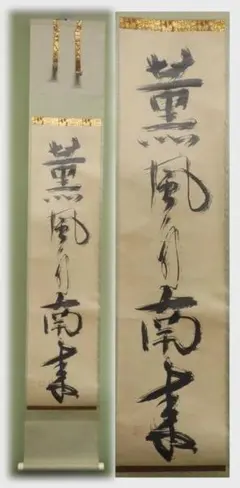 薫風自南来
薫風自南来